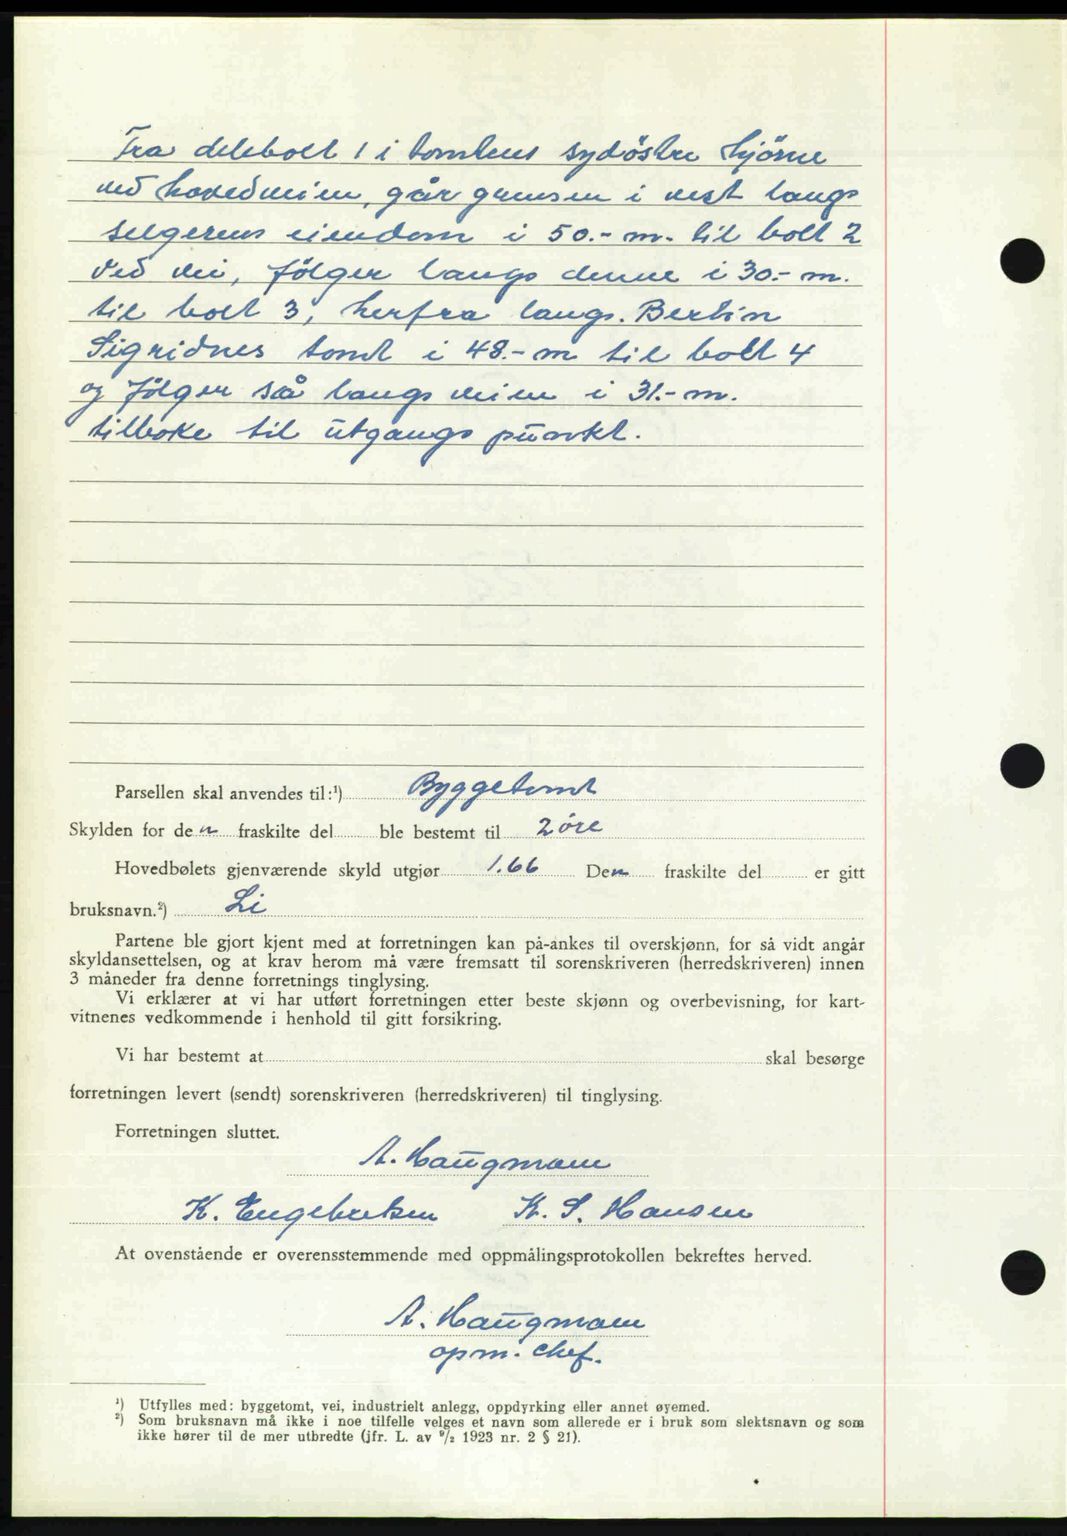 Fra delebolt 1 i tomtens sydöstre hjörne
ved hovedveien, går grensen i vest langs
selgerens eiendom i 50.- m. til bolt 2
ved vei, fölger langs denne i 30.- m.
til bolt 3, herfra langs. Bertin
Sigridnes tomt i 48.- m til bolt 4
og fölger så langs veien i 31.- m.
tilbake til utgangs punkt.
Parsellen skal anvendes til:¹) Byggetomt
Skylden for den fraskilte del ble bestemt til 2 öre
Hovedbølets gjenværende skyld utgjør 1.66 Den fraskilte del er gitt
bruksnavn.²) Li
Partene ble gjort kjent med at forretningen kan på-ankes til overskjønn, for så vidt angår
skyldansettelsen, og at krav herom må være fremsatt til sorenskriveren (herredskriveren) innen
3 måneder fra denne forretnings tinglysing.
Vi erklærer at vi har utført forretningen etter beste skjønn og overbevisning, for kart-
vitnenes vedkommende i henhold til gitt forsikring.
Vi har bestemt at skal besørge
forretningen levert (sendt) sorenskriveren (herredskriveren) til tinglysing.
Forretningen sluttet.
A. Haugmann
K. Engebretsen K. S. Hansen
At ovenstående er overensstemmende med oppmålingsprotokollen bekreftes herved.
A. Haugmann
opm. chef.
¹) Utfylles med: byggetomt, vei, industrielt anlegg, oppdyrking eller annet øyemed.
²) Som bruksnavn må ikke i noe tilfelle velges et navn som allerede er i bruk som slektsnavn og som
ikke hører til de mer utbredte (jfr. L. av ⁹/₂ 1923 nr. 2 § 21).